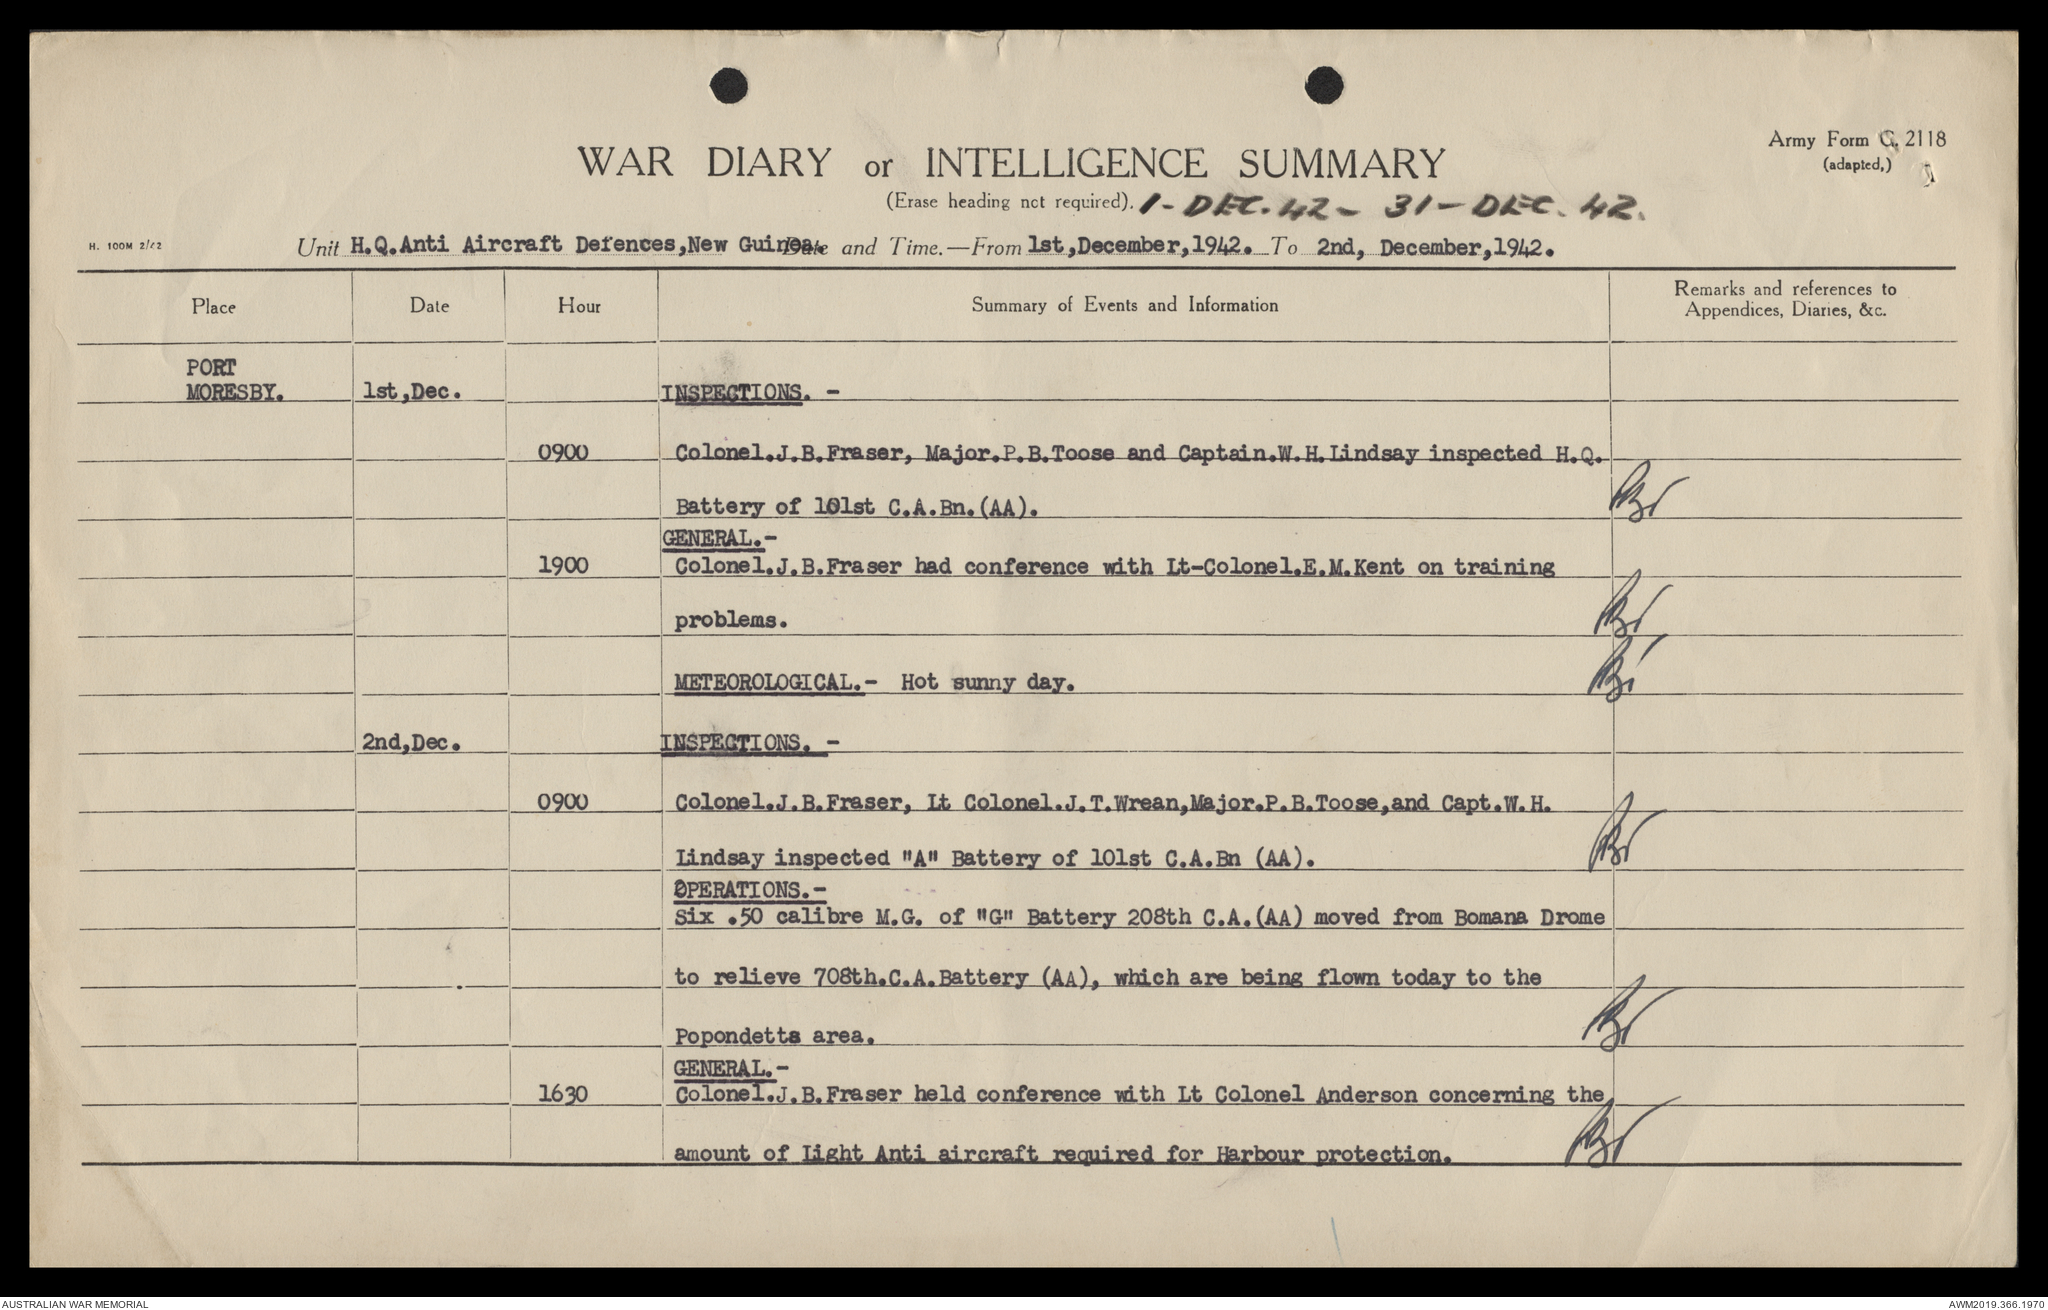 Army Form C. 2118
(adapted,)
WAR DIARY or INTELLIGENCE SUMMARY
(Erase heading not required). 1 - DEC. 42 - 31 - DEC. 42.
H. 100M 2/42
Unit H.Q.Anti Aircraft Defences,New Guinea. Date and Time.—From 1st,December,1942. To 2nd, December,1942.
Place Date Hour Summary of Events and Information Remarks and references to
Appendices, Diaries, &c.
PORT
MORESBY. 1st,Dec. INSPECTIONS. -
0900 Colonel.J.B.Fraser, Major.P.B.Toose and Captain.W.H.Lindsay inspected H.Q.
Battery of 101st C.A.Bn.(AA).
GENERAL.-
1900 Colonel.J.B.Fraser had conference with Lt-Colonel.E.M.Kent on training
problems.
METEOROLOGICAL.- Hot sunny day.
2nd,Dec. INSPECTIONS. -
0900 Colonel.J.B.Fraser, Lt Colonel.J.T.Wrean,Major.P.B.Toose,and Capt.W.H.
Lindsay inspected "A" Battery of 101st C.A.Bn (AA).
OPERATIONS.-
Six .50 calibre M.G. of "G" Battery 208th C.A.(AA) moved from Bomana Drome
to relieve 708th.C.A.Battery (AA), which are being flown today to the
Popondetta area.
GENERAL.-
1630 Colonel.J.B.Fraser held conference with Lt Colonel Anderson concerning the
amount of Light Anti aircraft required for Harbour protection.
AUSTRALIAN WAR MEMORIAL
AWM2019.366.1970